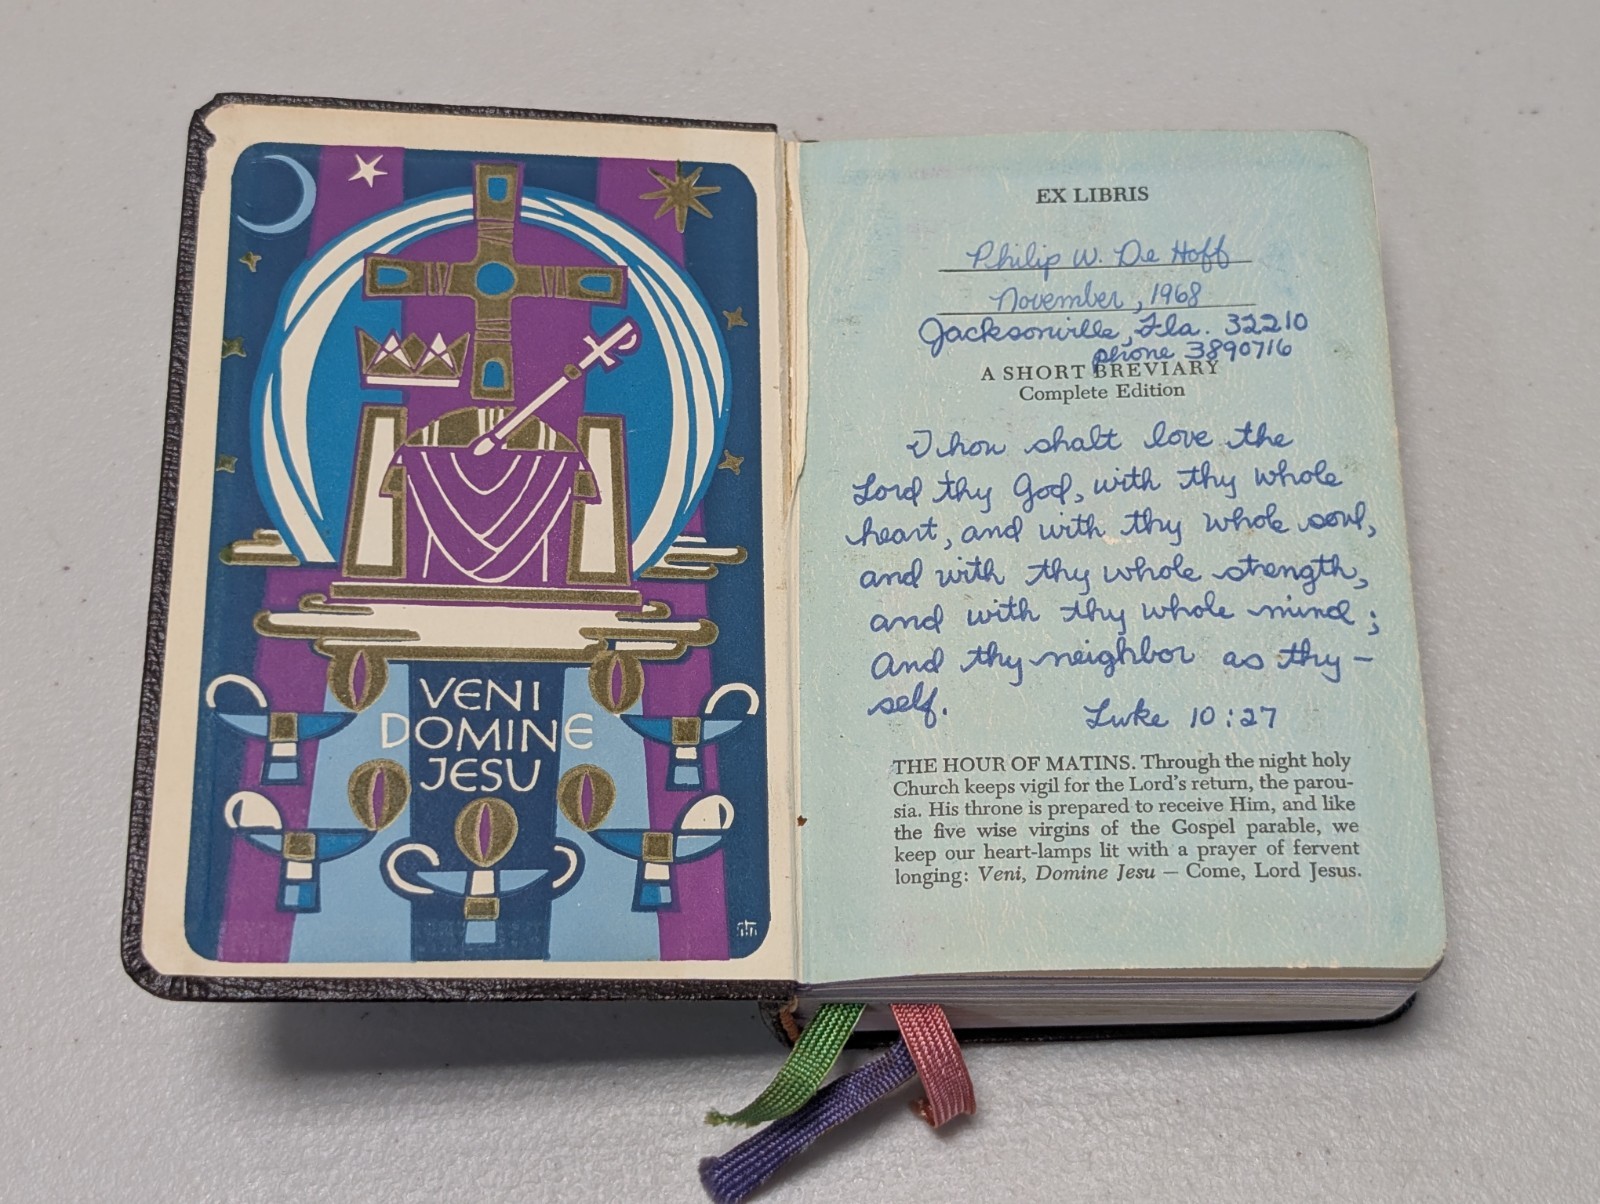 VENI
DOMINE
JESU
EX LIBRIS
Philip W. De Hoff
November, 1968
Jacksonville, Fla. 32210
phone 3890716
A SHORT BREVIARY
Complete Edition
Thou shalt love the
Lord thy God, with thy whole
heart, and with thy whole soul,
and with thy whole strength,
and with thy whole mind;
And thy neighbor as thy-
self.
Luke 10:27
THE HOUR OF MATINS. Through the night holy
Church keeps vigil for the Lord's return, the parou-
sia. His throne is prepared to receive Him, and like
the five wise virgins of the Gospel parable, we
keep our heart-lamps lit with a prayer of fervent
longing: Veni, Domine Jesu — Come, Lord Jesus.